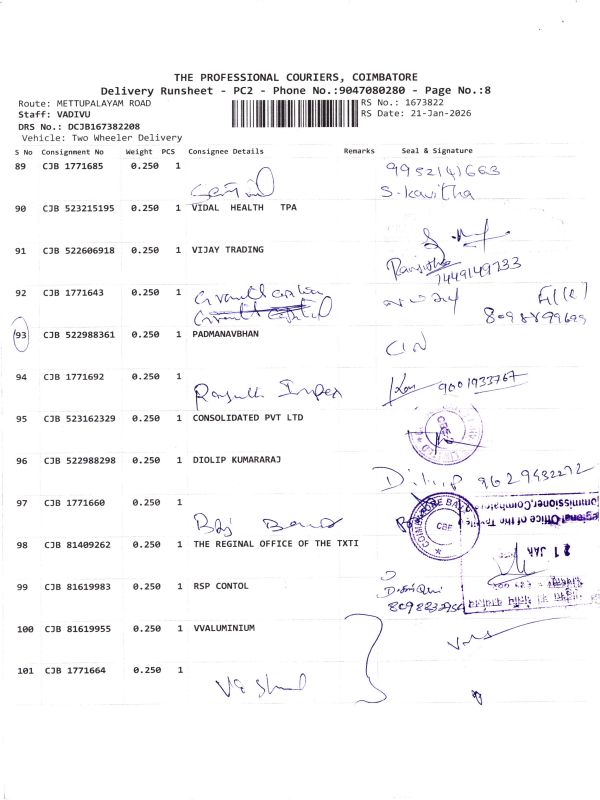 THE PROFESSIONAL COURIERS, COIMBATORE
Delivery Runsheet - PC2 - Phone No.:9047080280 - Page No.:8
Route: METTUPALAYAM ROAD RS No.: 1673822
Staff: VADIVU RS Date: 21-Jan-2026
DRS No.: DCJB167382208
Vehicle: Two Wheeler Delivery
S No Consignment No Weight PCS Consignee Details Remarks Seal & Signature
89 CJB 1771685 0.250 1
S-Kavitha
90 CJB 523215195 0.250 1 VIDAL HEALTH TPA
91 CJB 522606918 0.250 1 VIJAY TRADING
7449149733
92 CJB 1771643 0.250 1
93 CJB 522988361 0.250 1 PADMANAVBHAN
94 CJB 1771692 0.250 1
Impex 9001933767
95 CJB 523162329 0.250 1 CONSOLIDATED PVT LTD
96 CJB 522988298 0.250 1 DIOLIP KUMARARAJ
Dilip 9629432272
97 CJB 1771660 0.250 1
98 CJB 81409262 0.250 1 THE REGINAL OFFICE OF THE TXTI
COIMBATORE
CBE
Regional Office of the
Commissioner, Coimbatore
21 JAN
99 CJB 81619983 0.250 1 RSP CONTOL
100 CJB 81619955 0.250 1 VVALUMINIUM
101 CJB 1771664 0.250 1